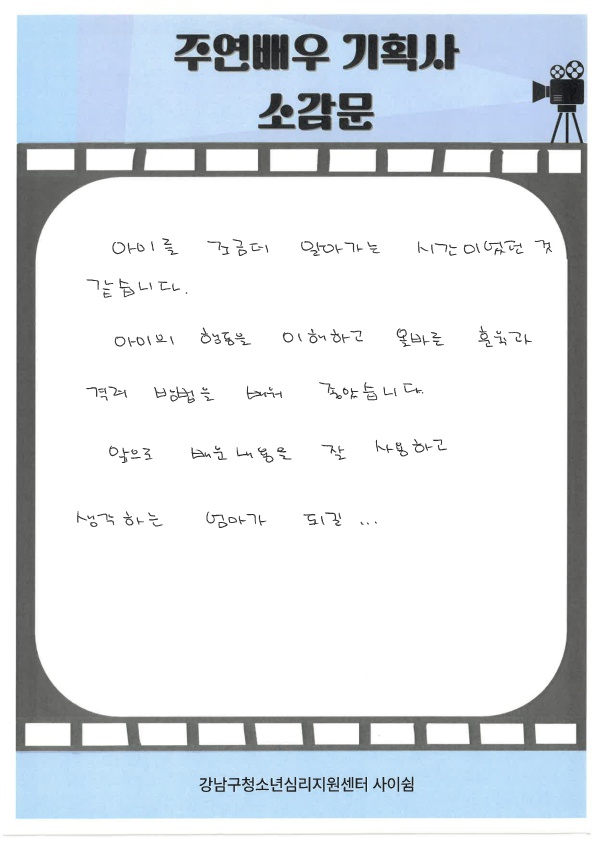 주연배우 기획사
소감문
아이를 조금더 알아가는 시간이었던 것
같습니다.
아이의 행동을 이해하고 올바른 훈육과
격려 방법을 배워 좋았습니다.
앞으로 배운 내용을 잘 사용하고
생각하는 엄마가 되길 ...
강남구청소년심리지원센터 사이쉼